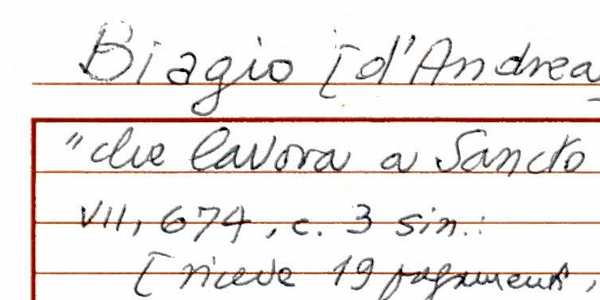 Biagio [d'Andrea
"che lavora a Sancto
VII, 674, c. 3 sin.:
[riceve 19 pagamenti,